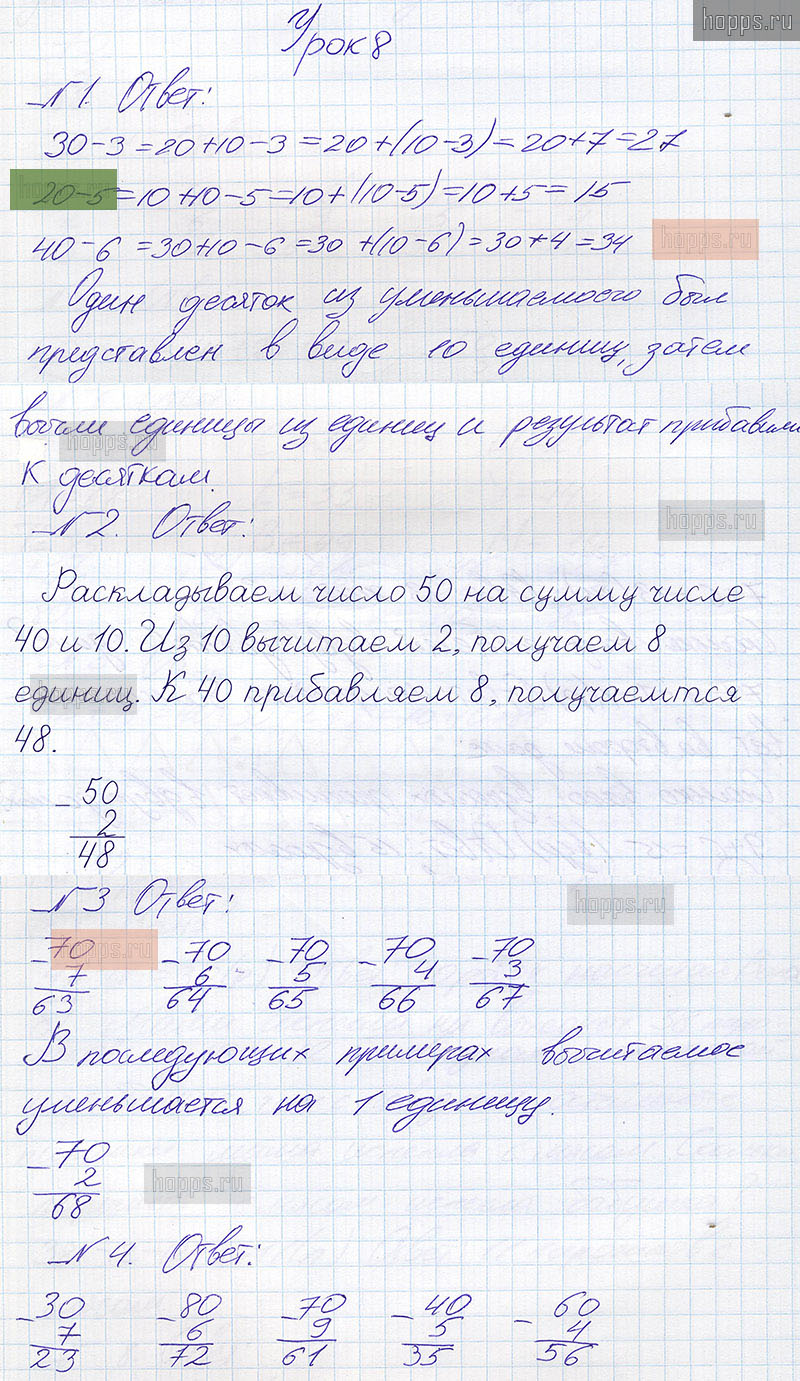 hopps.ru
Урок 8
№1. Ответ:
30-3=20+10-3=20+(10-3)=20+7=27
20-5=10+10-5=10+(10-5)=10+5=15
40-6=30+10-6=30+(10-6)=30+4=34
hopps.ru
Один десяток из уменьшаемоего был
представлен в виде 10 единиц, затем
вычли единицы из единиц и результат прибавили
hopps.ru
к десяткам.
№2. Ответ:
hopps.ru
Раскладываем число 50 на сумму числе
40 и 10. Из 10 вычитаем 2, получаем 8
единиц. К 40 прибавляем 8, получаемтся
hopps.ru
48.
- 50
2
48
№3 Ответ:
hopps.ru
-70 -70 -70 -70 -70
hopps.ru
7 6 5 4 3
63 64 65 66 67
В последующих примерах вычитаемое
уменьшается на 1 единицу.
-70
2
68
hopps.ru
№4. Ответ:
-30 -80 -70 -40 -60
7 6 9 5 4
23 72 61 35 56